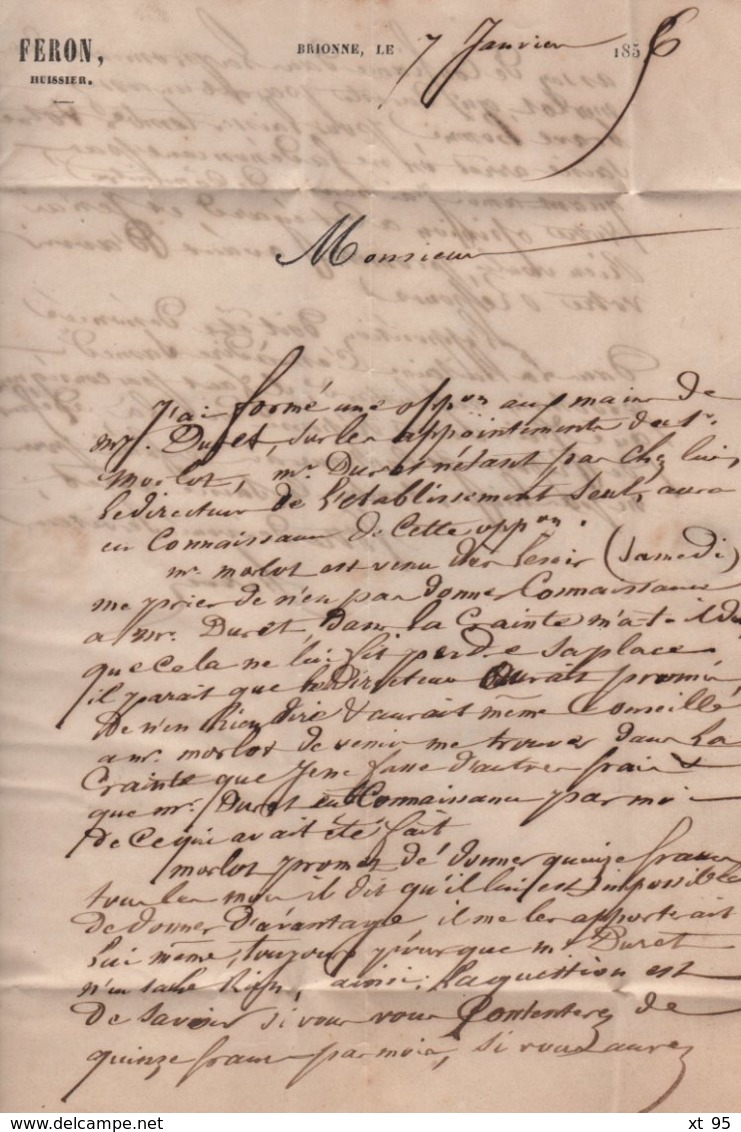 FERON,
HUISSIER.
BRIONNE, LE 7 Janvier 1856
Monsieur
J'ai formé une opp.on aux mains de
mr. Duret, sur les appointements du sr.
Morlot, mr. Duret n'étant pas chez lui,
le directeur de l'établissement seul, aura
eu connaissance de cette opp.on.
mr. morlot est venu hier le soir (samedi)
me prier de n'en pas donner connaissance
a mr. Duret, dans la crainte m'a-t-il dit
que cela ne lui fit perdre sa place.
il parait que le directeur aurait promis
de n'en rien dire & aurait même conseillé
a mr. morlot de venir me trouver dans la
crainte que je ne fasse d'autres frais &
que mr. Duret eut connaissance par moi
de ce qui avait été fait
morlot promet de donner quinze francs
tous les mois il dit qu'il lui est impossible
de donner d'avantage il me les apporterait
lui même, toujours pour que mr Duret
n'en sache rien, ainsi, la question est
de savoir si vous vous contenterez de
quinze francs par mois, si vous aurez
xt 95